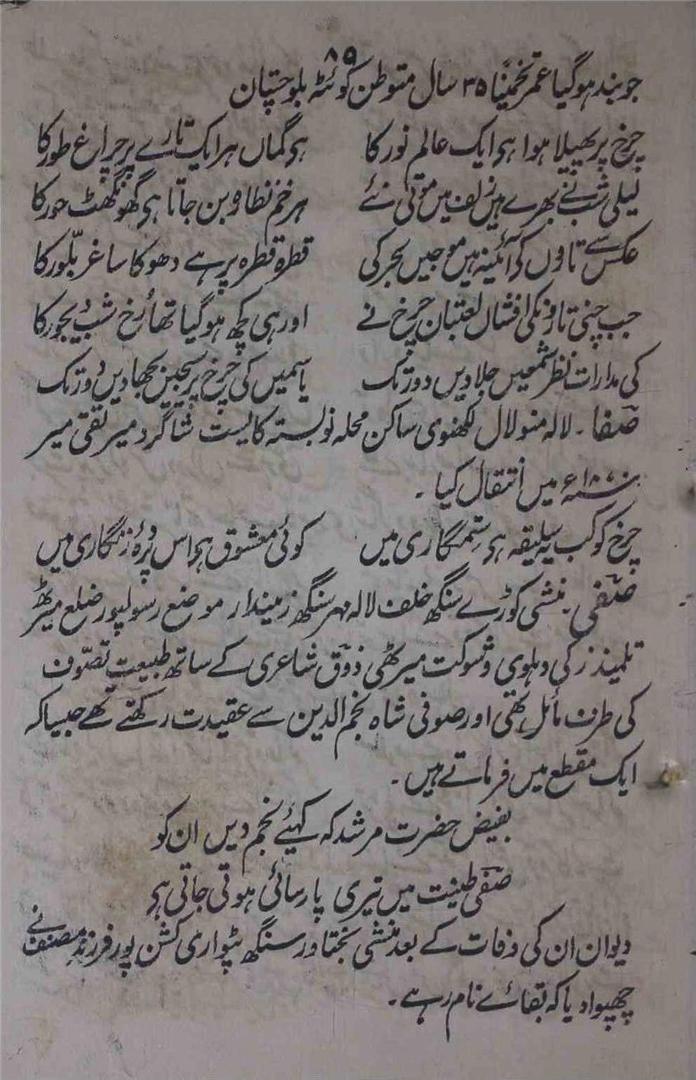 ۸۹
جو بند ہوگیا عمر تخمیناً ۳۵ سال متوطن کوئٹہ بلوچستان
چرخ پر پھیلا ہوا ہی ایک عالم نور کا ہی گماں ہر ایک تارے پر چراغ طور کا
لیلیٰ شب نے بھرے ہیں زلف میں موتی نئے ہر خم نظارہ بن جاتا ہی گھونگھٹ حور کا
عکس سے تاروں کی آئینہ ہیں موجیں بحر کی قطرہ قطرہ پر ہے دھوکا ساغر بلّور کا
جب چنی تارونکی افشاں لعبتان چرخ نے اور ہی کچھ ہوگیا تھا رُخ شب دیجور کا
کی مدارات نظر شمعیں جلادیں دور تک یاسمیں کی چرخ پر سیجیں بچھادیں دور تک
صفا۔ لالہ منولال لکھنوی ساکن محلہ نوبستہ کایست شاگرد میر تقی میر
۱۸۷۰ء میں انتقال کیا۔
چرخ کو کب یہ سلیقہ ہی ستمگاری میں کوئی معشوق ہی اس پردۂ زنگاری میں
صفی۔ منشی کوڑے سنگھ خلف لالہ مہر سنگھ زمیندار موضع رسولپور ضلع میرٹھ
تلمیذ زکی دہلوی و شوکت میرٹھی ذوق شاعری کے ساتھ طبیعت تصوّف
کی طرف مائل تھی اور صوفی شاہ نجم الدین سے عقیدت رکھتے تھے جیساکہ
ایک مقطع میں فرماتے ہیں۔
بفیض حضرت مرشد کہ کہئیے نجم دیں ان کو
صفی طینت میں تیری پارسائی ہوتی جاتی ہی
دیوان ان کی وفات کے بعد منشی بختاور سنگھ پٹواری کشن پور فرزند مصنف نے
چھپوا دیا کہ بقائے نام رہے۔